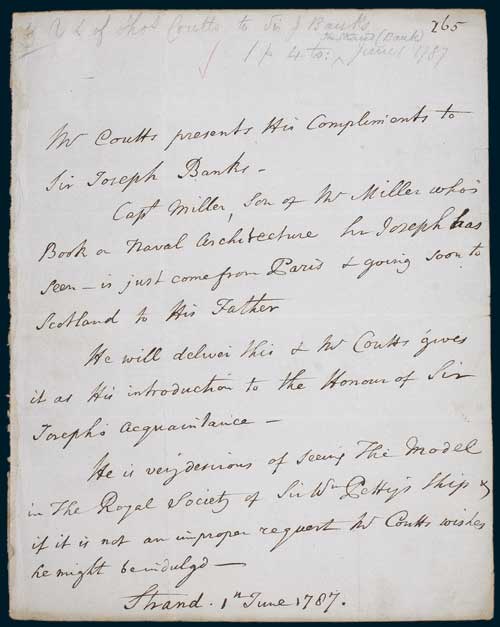 of Thos Coutts to Sir J Banks
265
The Strand (Bank)
1 p 4to: June 1 1787
Mr Coutts presents His Compliments to
Sir Joseph Banks -
Capt Miller, Son of Mr Miller who's
Book on Naval Architecture Sr Joseph has
seen - is just come from Paris & going soon to
Scotland to His Father
He will deliver this & Mr Coutts gives
it as His introduction to the Honour of Sir
Joseph's acquaintance -
He is very desirous of seeing The Model
in The Royal Society of Sir Wm Petty's Ship &
if it is not an improper request Mr Coutts wishes
he might be indulgd -
Strand. 1st June 1787.